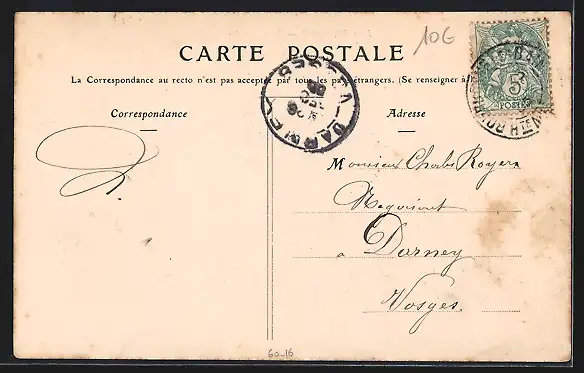 10€
CARTE POSTALE
La Correspondance au recto n'est pas acceptée par tous les pays étrangers. (Se renseigner à
Correspondance
Adresse
DARNEY
5
POSTES
Monsieur Charles Royer
à Darney
Vosges.
60-16